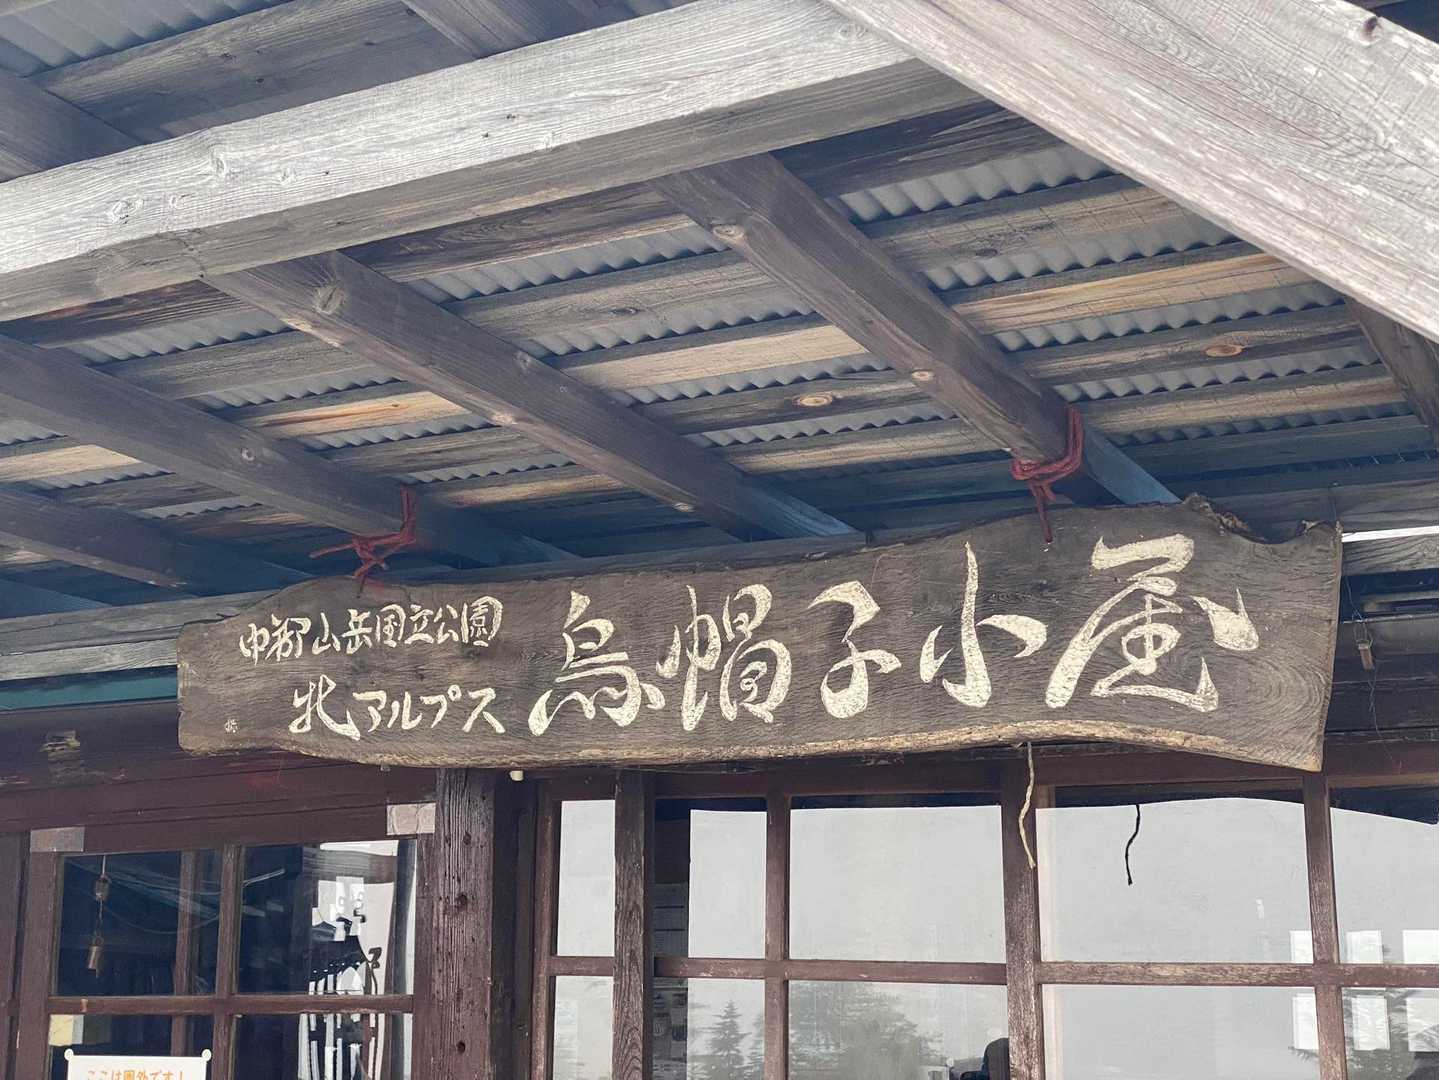 中部山岳国立公園
北アルプス
烏帽子小屋
ここは圏外です!